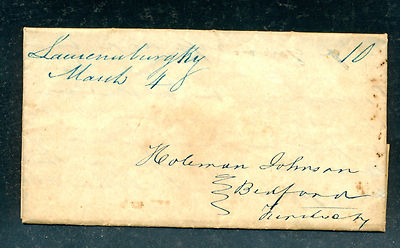 Lawrenceburg Ky
March 4
10
Holeman Johnson
Bedford
Kentucky